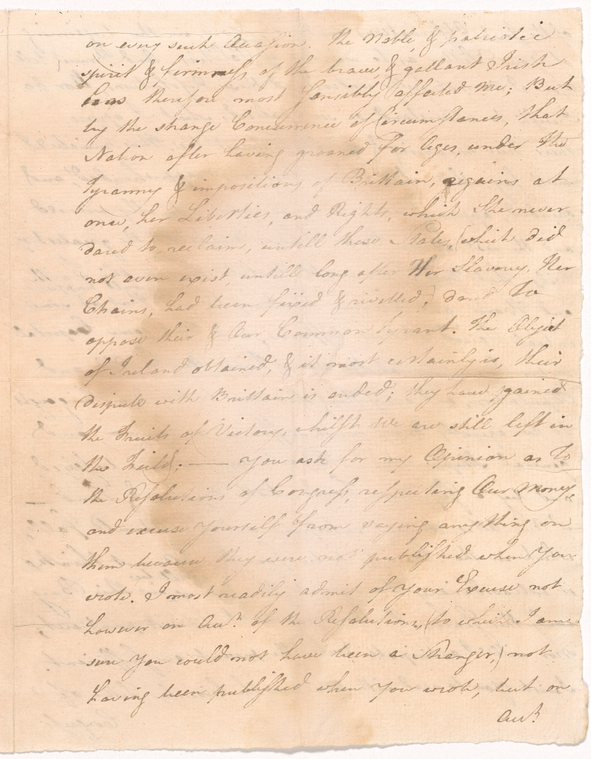 on every such Occasion. The Noble & patriotic
spirit & firmness of the brave & gallant Irish
has therefore most sensibly affected me; But
by the strange Concurrence of Circumstances, that
Nation after having groaned for Ages, under the
Tyranny & impositions of Brittain, regains at
once, her Liberties, and Rights, which She never
dared to, reclaim, untill these States, (which did
not even exist, untill long after Her Slavery, Her
Chains, had been fixed & rivetted,) dared to
oppose their & Our Common Tyrant. The Object
of Ireland obtained, & it most certainly is, their
dispute with Brittain is ended; they have, gained
the Fruits of Victory, whilst We are still left in
the Field; — You ask for my Opinion as to
the Resolutions of Congress, respecting Our Money
and excuse yourself from saying any thing on
them because they were not published when You
wrote. I most readily admit of Your Excuse not
however on Aut. of the Resolutions, (to which I am
sure You could not have been a Stranger,) not
having been published when You wrote, but on
Aut.